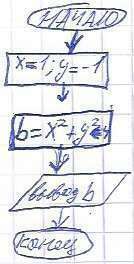 НАЧАЛО
x=1; y=-1
вывод b
конец